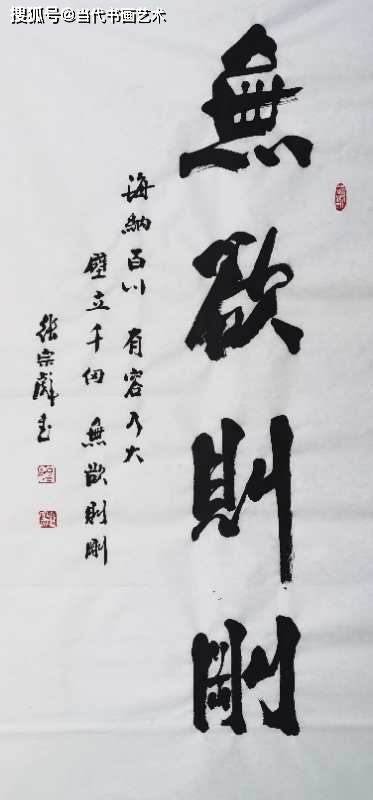 搜狐号@当代书画艺术
無欲則剛
海納百川 有容乃大
壁立千仞 無欲則剛
張宗彪書